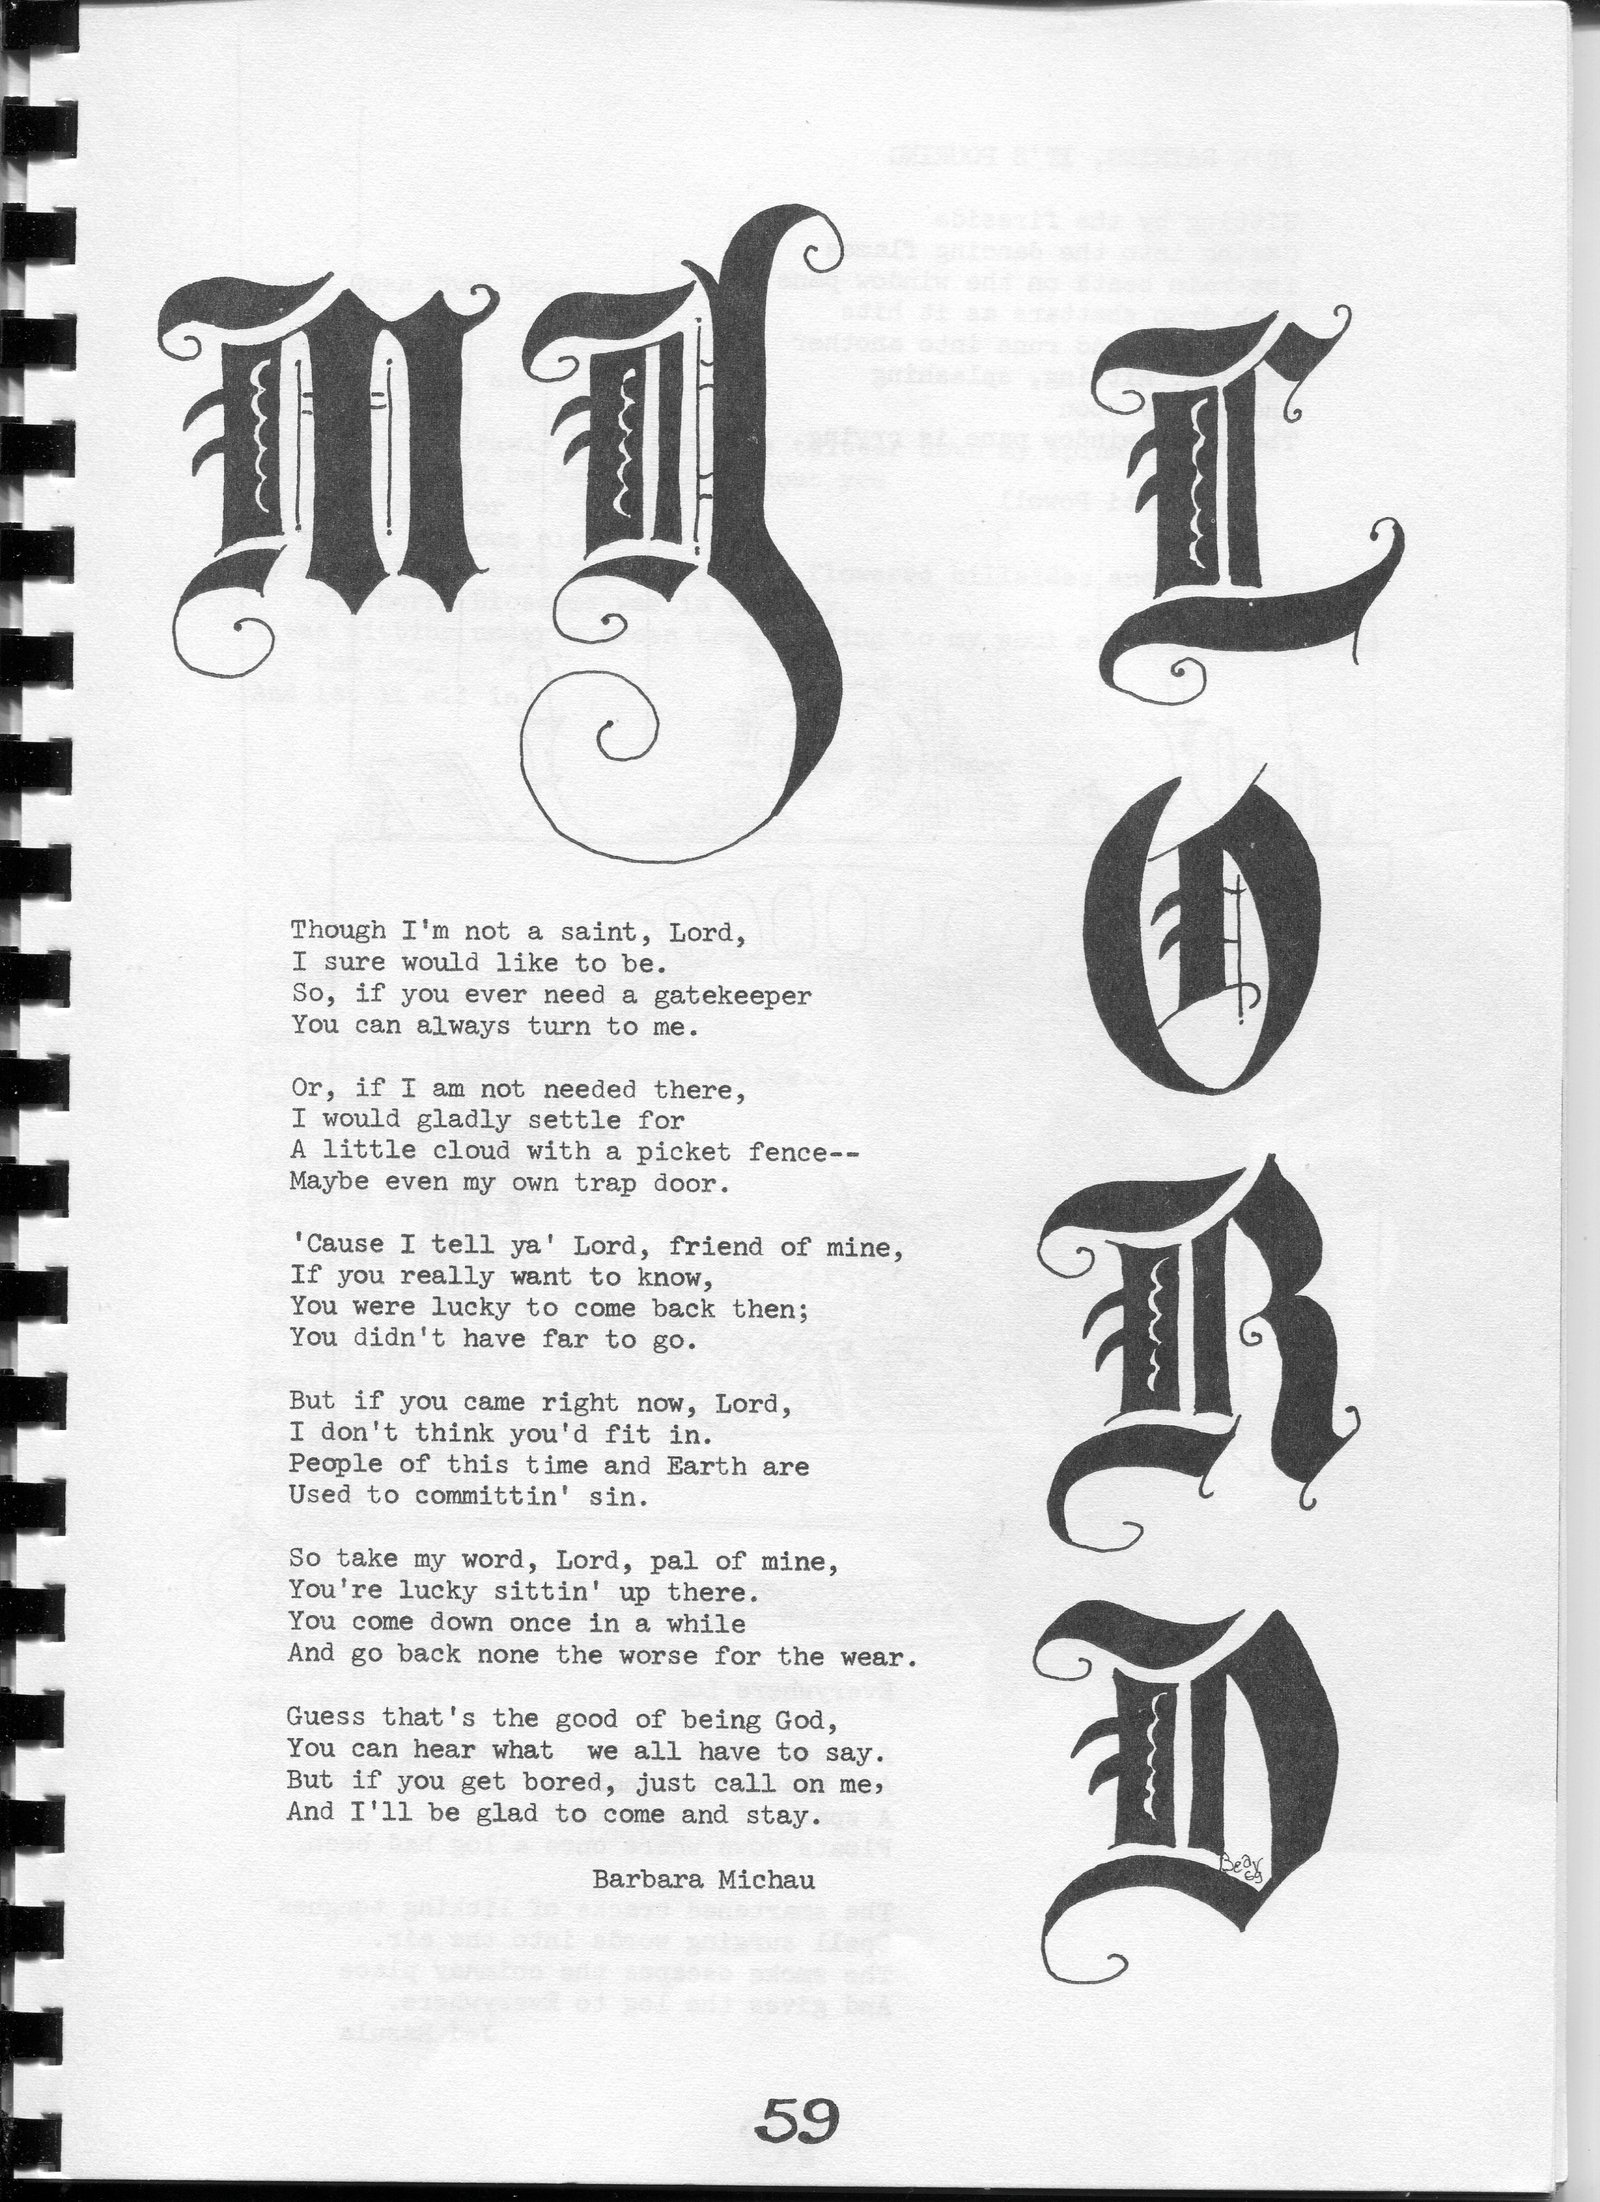 My
LORD
Though I'm not a saint, Lord,
I sure would like to be.
So, if you ever need a gatekeeper
You can always turn to me.
Or, if I am not needed there,
I would gladly settle for
A little cloud with a picket fence--
Maybe even my own trap door.
'Cause I tell ya' Lord, friend of mine,
If you really want to know,
You were lucky to come back then;
You didn't have far to go.
But if you came right now, Lord,
I don't think you'd fit in.
People of this time and Earth are
Used to committin' sin.
So take my word, Lord, pal of mine,
You're lucky sittin' up there.
You come down once in a while
And go back none the worse for the wear.
Guess that's the good of being God,
You can hear what  we all have to say.
But if you get bored, just call on me,
And I'll be glad to come and stay.
Barbara Michau
Beav
69
59